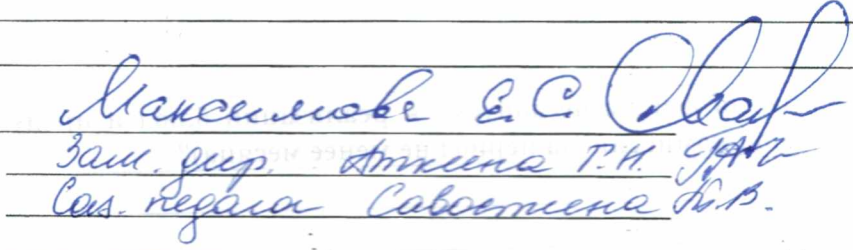 Максимова Е.С.
Зам. дир. Аткина Г.Н.
Соц. педагог Савостина